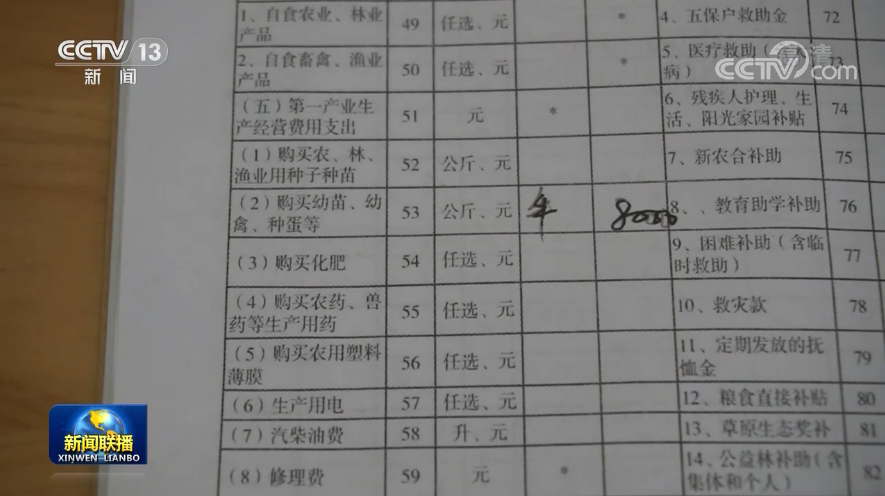 CCTV 13
新闻
CCTV.com
1、自食农业、林业产品 49 任选、元 * 4、五保户救助金 72
2、自食畜禽、渔业产品 50 任选、元 * 5、医疗救助（大病） 73
（五）第一产业生产经营费用支出 51 元 * 6、残疾人护理、生活、阳光家园补贴 74
（1）购买农、林、渔业用种子种苗 52 公斤、元 7、新农合补助 75
（2）购买幼苗、幼禽、种蛋等 53 公斤、元 牟 8000 8、、教育助学补助 76
（3）购买化肥 54 任选、元 9、困难补助（含临时救助） 77
（4）购买农药、兽药等生产用药 55 任选、元 10、救灾款 78
（5）购买农用塑料薄膜 56 任选、元 11、定期发放的抚恤金 79
（6）生产用电 57 任选、元 12、粮食直接补贴 80
（7）汽柴油费 58 升、元 13、草原生态奖补 81
（8）修理费 59 元 * 14、公益林补助（含集体和个人） 82
新闻联播
XINWEN LIANBO